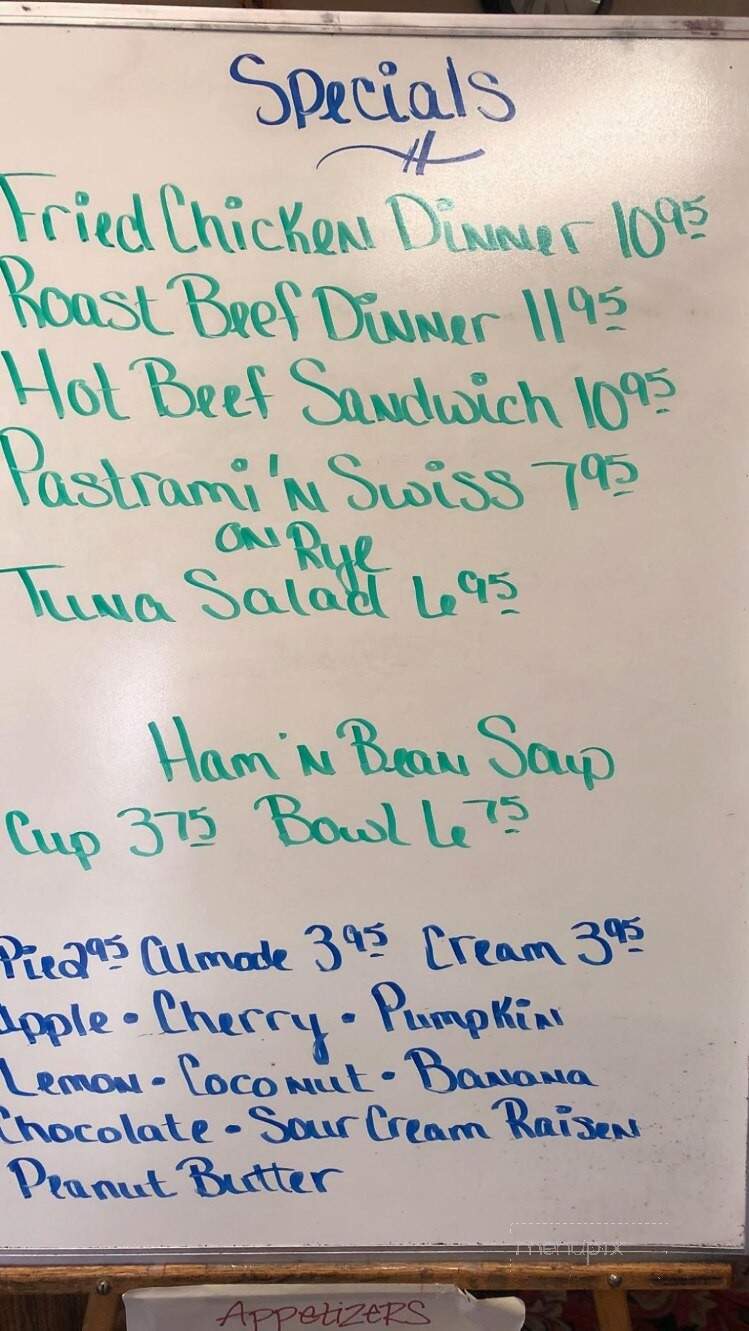 Specials
Fried Chicken Dinner 10 95
Roast Beef Dinner 11 95
Hot Beef Sandwich 10 95
Pastrami 'N Swiss 7 95
on Rye
Tuna Salad 6 95
Ham 'N Bean Soup
Cup 3 75 Bowl 6 75
Pie 2 95 Alamode 3 95 Cream 3 95
Apple • Cherry • Pumpkin
Lemon • Coconut • Banana
Chocolate • Sour Cream Raisen
Peanut Butter
menupix
Appetizers